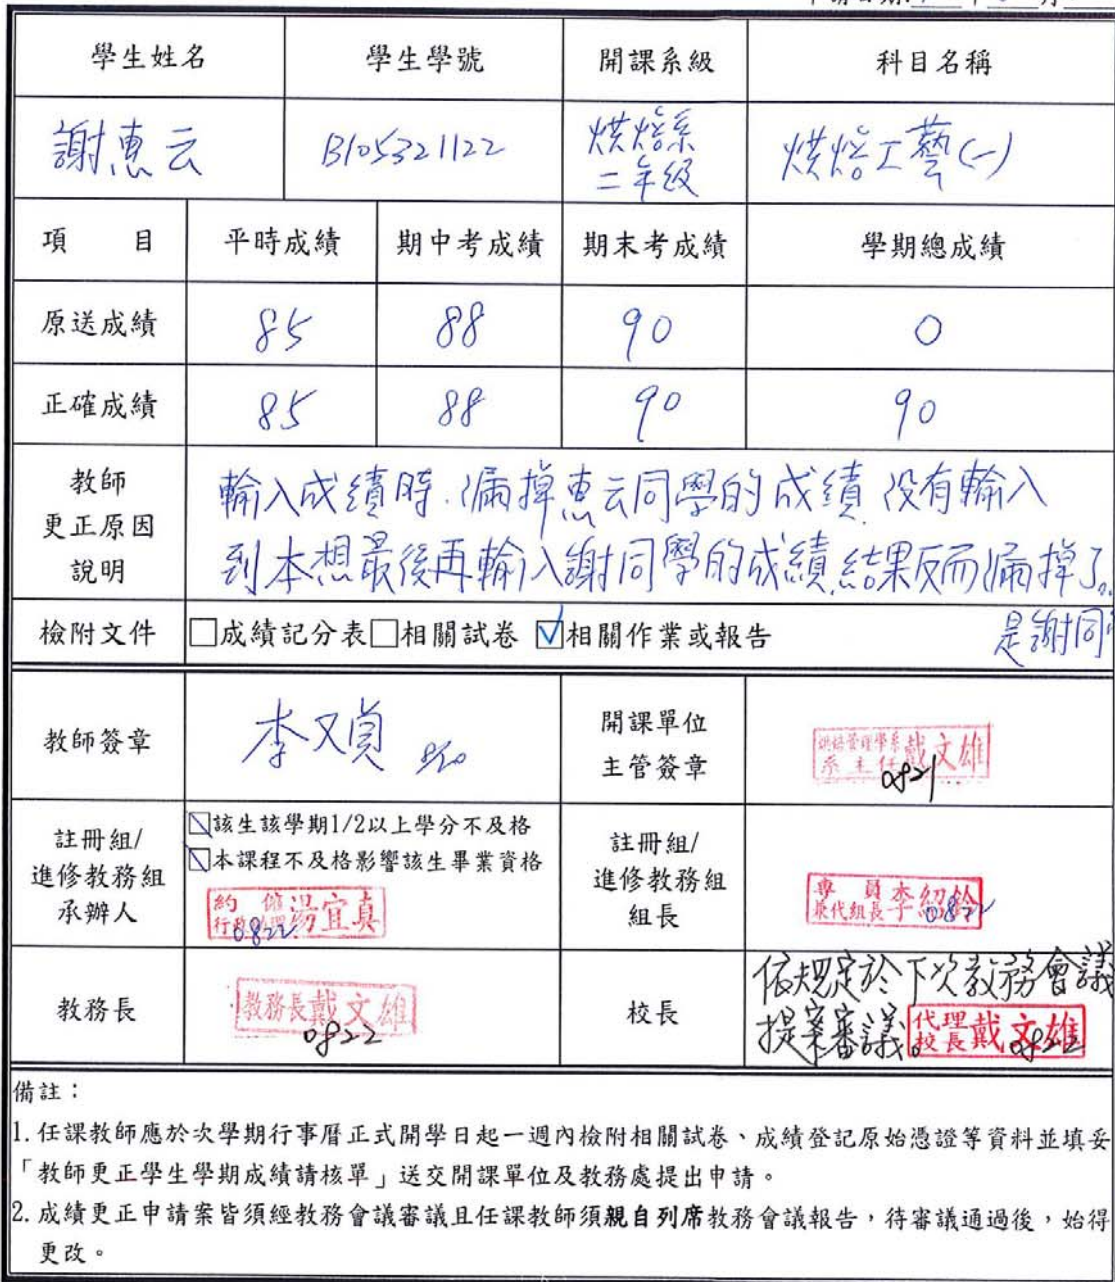 學生姓名 學生學號 開課系級 科目名稱
謝惠云 B105321122 烘焙系 二年級 烘焙工藝(一)
項 目 平時成績 期中考成績 期末考成績 學期總成績
原送成績 85 88 90 0
正確成績 85 88 90 90
教師
更正原因
說明
輸入成績時.漏掉惠云同學的成績,沒有輸入
到本想最後再輸入謝同學的成績,結果反而漏掉了。
是謝同
檢附文件 □成績記分表□相關試卷 ☑相關作業或報告
教師簽章 李又貞 8/20
開課單位
主管簽章
烘焙管理學系
系主任 戴文雄
0821
註冊組/
進修教務組
承辦人
□該生該學期1/2以上學分不及格
□本課程不及格影響該生畢業資格
湯宜真
0822
註冊組/
進修教務組
組長
專員
兼代組長 李紹鈴
0822
教務長
教務長戴文雄
0822
校長
依規定於下次教務會議
提案審議。
代理
校長 戴文雄
0822
備註:
1.任課教師應於次學期行事曆正式開學日起一週內檢附相關試卷、成績登記原始憑證等資料並填妥
「教師更正學生學期成績請核單」送交開課單位及教務處提出申請。
2.成績更正申請案皆須經教務會議審議且任課教師須親自列席教務會議報告,待審議通過後,始得
更改。